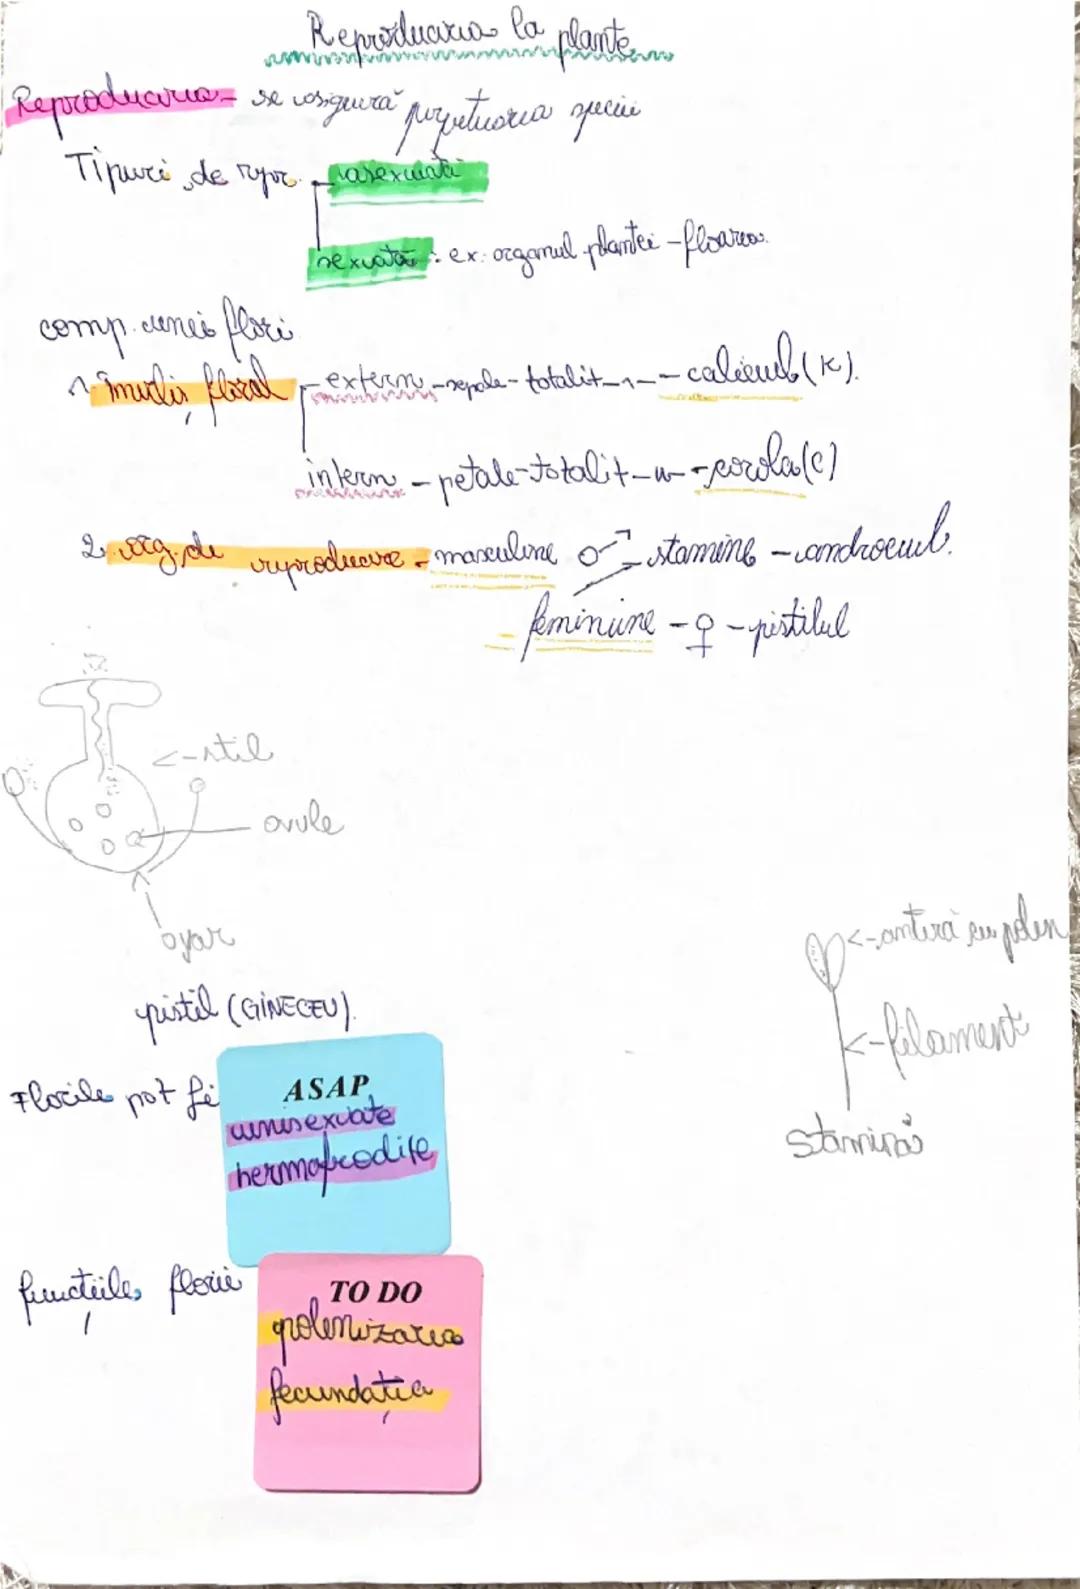 Reproducerea la plante
Reproducerea - se asigură perpetuarea speciei
Tipuri de repr. asexuată
sexuată : ex. organul plantei - floarea.
comp. unei flori
1. înveliș floral - extern - sepale - totalit - " - - caliciul (K).
intern - petale - totalit - " - - corola (C)
2. org. de reproducere - masculine ♂ - stamine - androceul.
= feminine - ♀ - pistilul
<- stil
ovule
ovar
<- anteră cu polen
pistil (GINECEU).
<- filament
Florile pot fi
ASAP
unisexuate
hermafrodite
Stamină
funcțiile florii
TO DO
polenizarea
fecundația